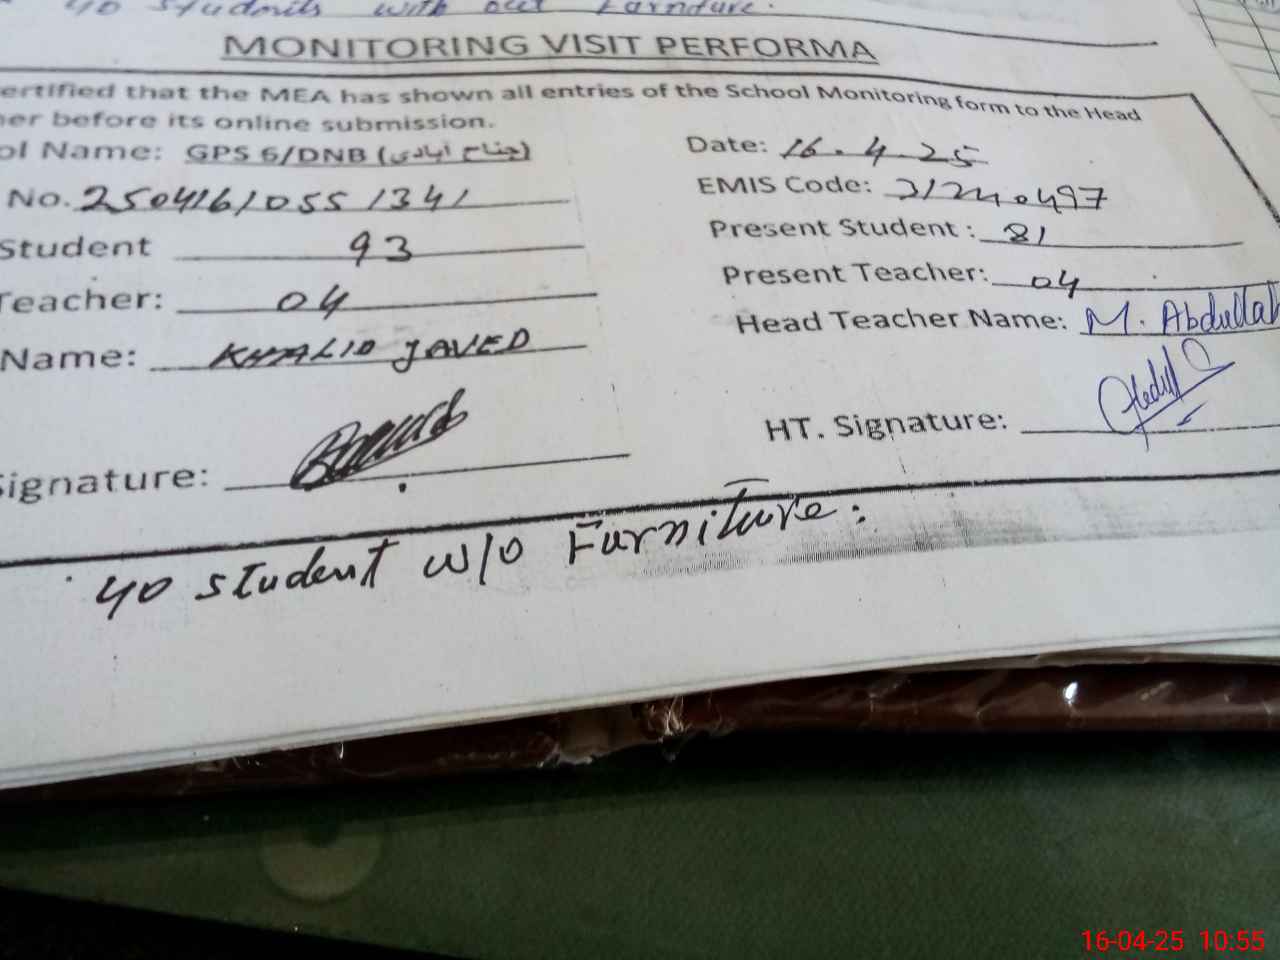 40 students with out Farniture.
MONITORING VISIT PERFORMA
ertified that the MEA has shown all entries of the School Monitoring form to the Head
er before its online submission.
ol Name: GPS 6/DNB (جناح آبادی)
Date: 16.4.25
No. 25041610551341
EMIS Code: 31240497
Student 93
Present Student: 81
Teacher: 04
Present Teacher: 04
Name: KHALID JAVED
Head Teacher Name: M. Abdullah
ignature:
HT. Signature:
40 student w/o Furniture.
16-04-25 10:55